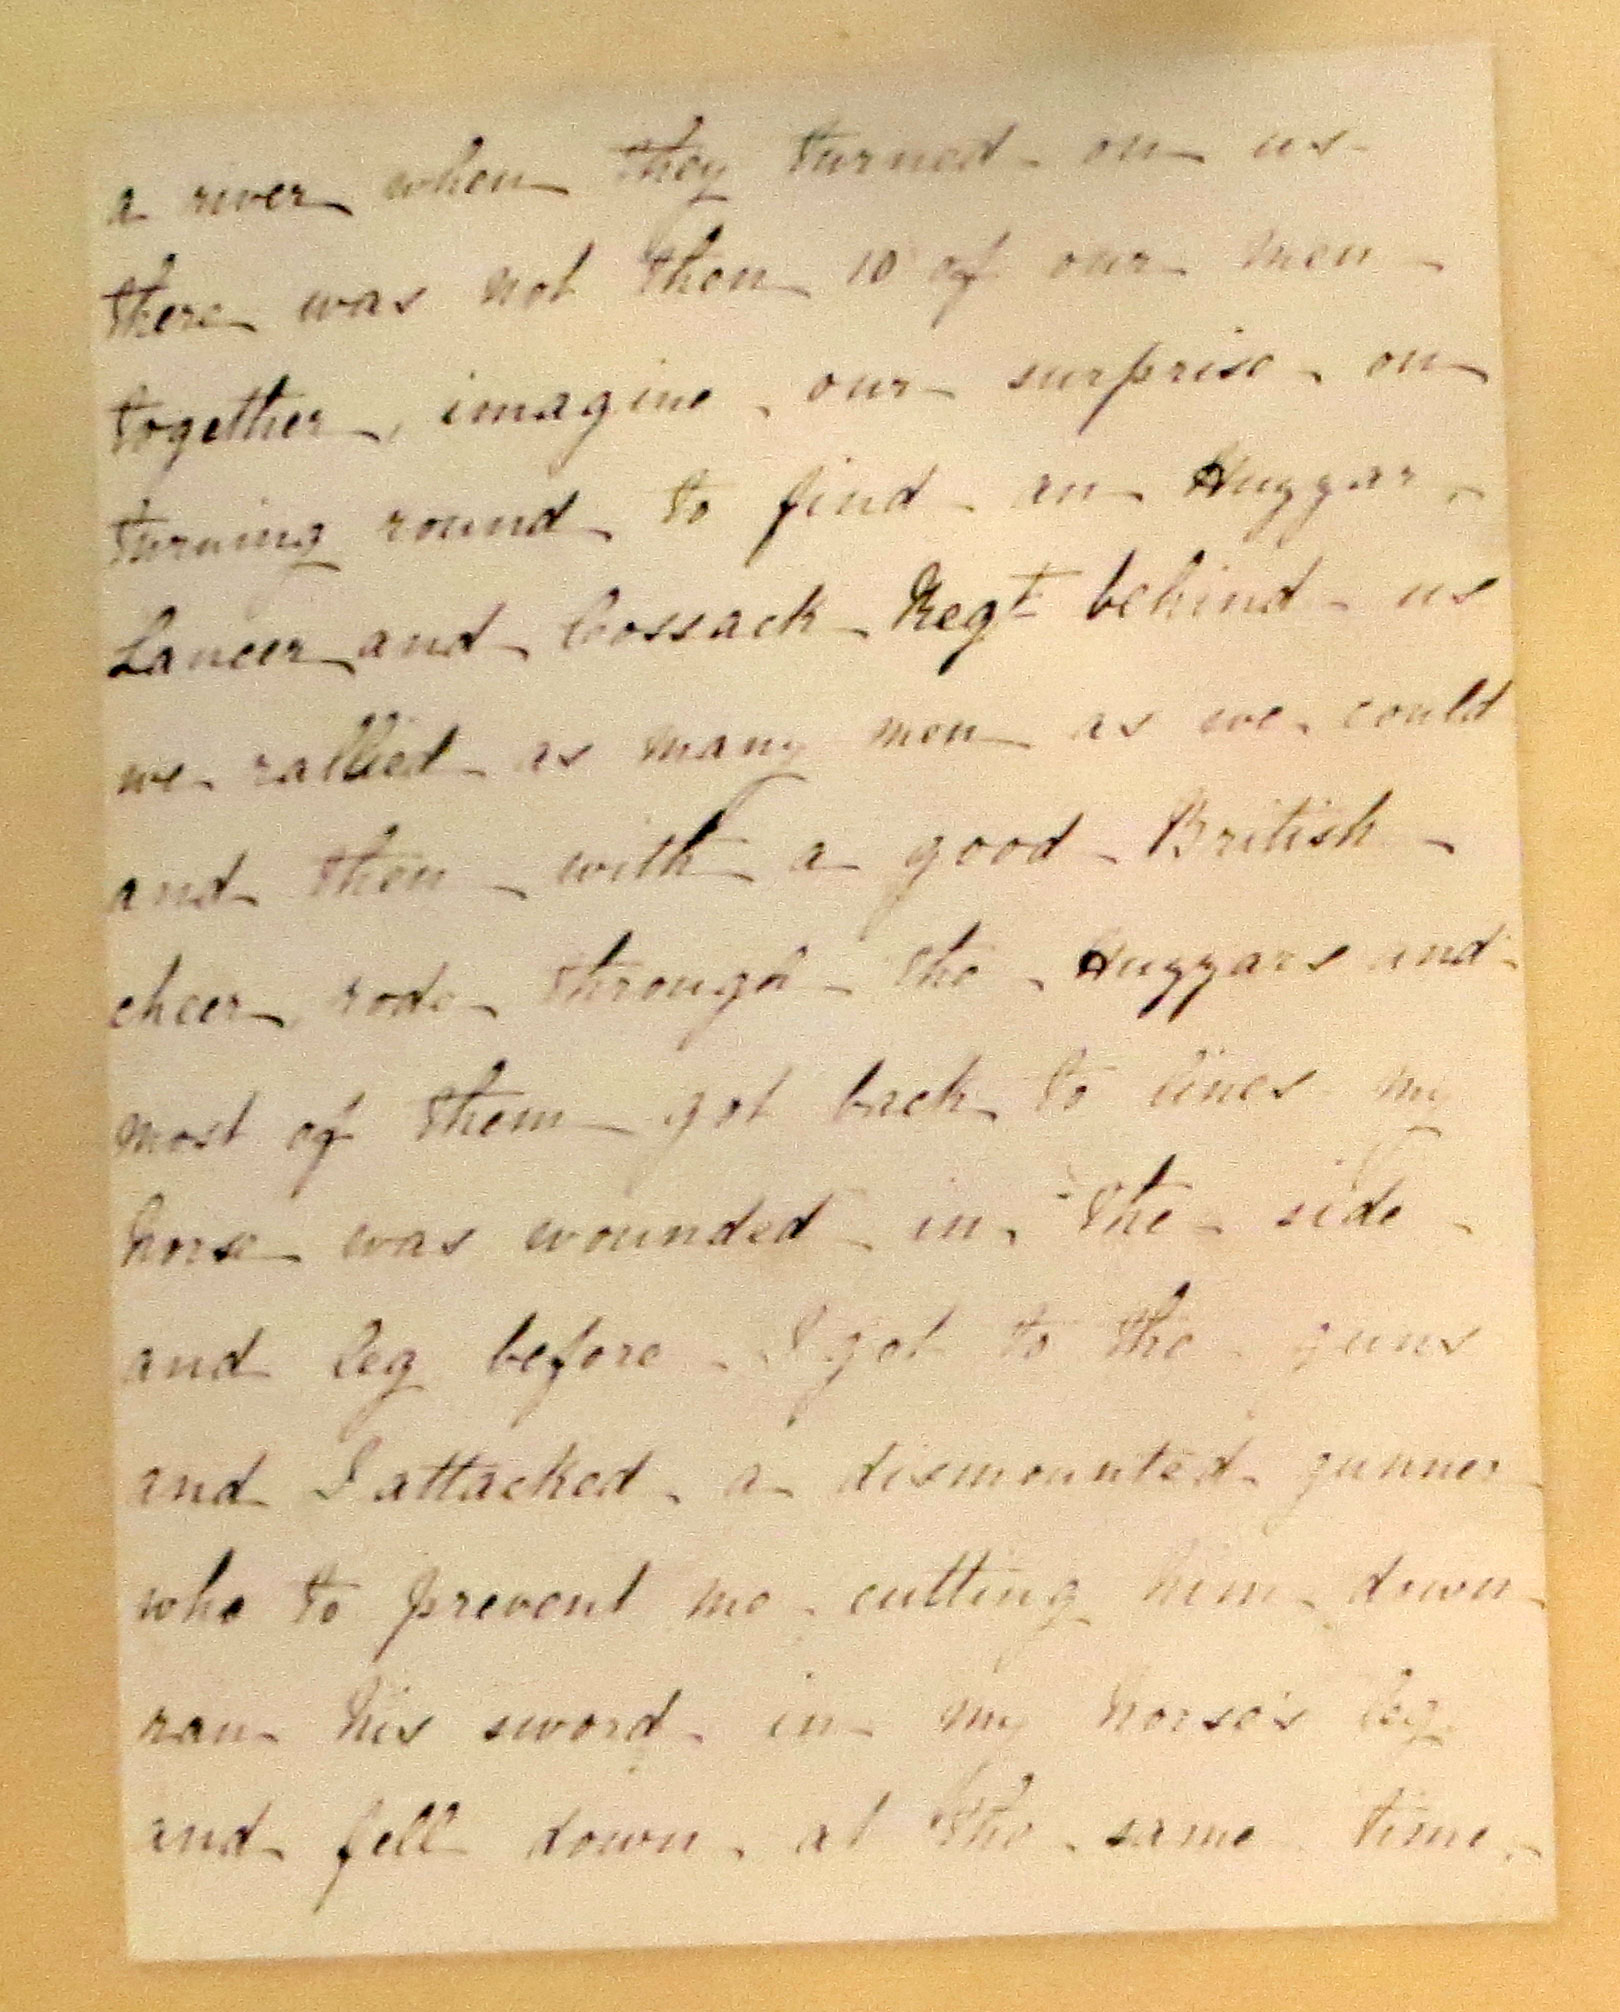 a river when they turned on us
there was not then 10 of our men
together, imagine our surprise on
turning round to find an Huzzar,
Lancer and Cossack Regt behind us
we rallied as many men as we could
and then with a good British
cheer, rode through the Huzzars and
most of them got back to lines my
horse was wounded in the side
and leg before I got to the guns
and I attacked a dismounted gunner
who to prevent me cutting him down
ran his sword in my horse's leg
and fell down at the same time.